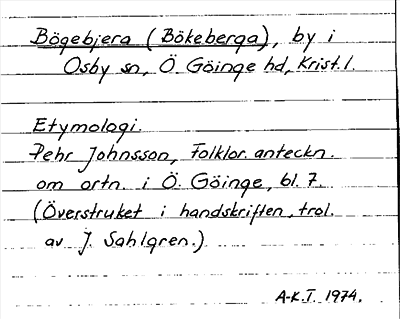 Bögebjera (Bökeberga), by i
Osby sn, Ö. Göinge hd, Krist. l.
Etymologi.
Pehr Johnsson, Folklor. anteckn.
om ortn. i Ö. Göinge, bl. 7.
(Överstruket i handskriften, trol.
av J. Sahlgren.)
A-K.T. 1974.